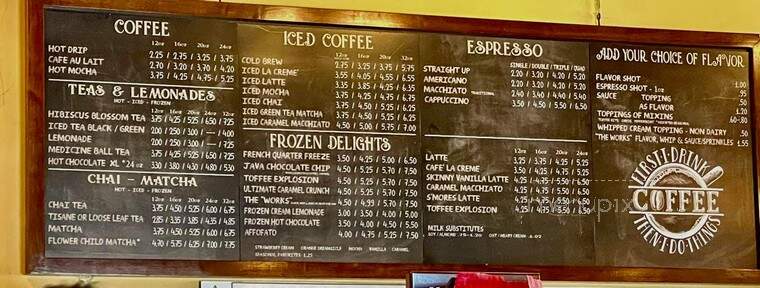 COFFEE
12oz 16oz 20oz 24oz
HOT DRIP 2.25 / 2.75 / 3.25 / 3.75
CAFE AU LAIT 2.70 / 3.20 / 3.70 / 4.20
HOT MOCHA 3.75 / 4.25 / 4.75 / 5.25
TEAS & LEMONADES
HOT - ICED - FROZEN
12oz 16oz 20oz 24oz
HIBISCUS BLOSSOM TEA 3.75 / 4.25 / 5.25 / 6.50 / 7.25
ICED TEA BLACK / GREEN 2.00 / 2.50 / 3.00 / — / 4.00
LEMONADE 2.00 / 2.50 / 3.00 /
MEDICINE BALL TEA 3.75 / 4.25 / 5.25 / 6.50 / 7.25
HOT CHOCOLATE XL *24 oz 3.30 / 3.80 / 4.30 / 4.80 / 5.30
CHAI - MATCHA
HOT - ICED - FROZEN
CHAI TEA 3.75 / 4.50 / 5.25 / 6.00 / 6.75
TISANE OR LOOSE LEAF TEA 2.85 / 3.35 / 3.85 / 4.35 / 4.85
MATCHA 3.75 / 4.50 / 5.25 / 6.00 / 6.75
FLOWER CHILD MATCHA* 4.70 / 5.75 / 6.25 / 7.00 / 7.75
ICED COFFEE
12oz 16oz 20oz 32oz
COLD BREW 2.75 / 3.25 / 3.75 / 5.75
ICED LA CREME 3.55 / 4.05 / 4.55 / 6.55
ICED LATTE 3.35 / 3.85 / 4.35 / 6.35
ICED MOCHA 3.75 / 4.25 / 4.75 / 6.75
ICED CHAI 3.75 / 4.50 / 5.25 / 6.25
ICED GREEN TEA MATCHA 3.75 / 4.50 / 5.25 / 6.25
ICED CARAMEL MACCHIATO 4.50 / 5.00 / 5.75 / 7.00
FROZEN DELIGHTS
FRENCH QUARTER FREEZE 3.50 / 4.25 / 5.00 / 6.50
JAVA CHOCOLATE CHIP 4.50 / 5.25 / 5.70 / 7.50
TOFFEE EXPLOSION 4.50 / 5.25 / 5.70 / 7.50
ULTIMATE CARAMEL CRUNCH 4.50 / 5.25 / 5.70 / 7.50
THE "WORKS" 4.50 / 4.99 / 5.70 / 7.00
FROZEN CREAM LEMONADE 3.00 / 3.50 / 4.00 / 5.00
FROZEN HOT CHOCOLATE 3.50 / 4.50 / 5.50 / 6.50
AFFOFATO 4.00 / 4.75 / 5.25 / 7.50
STRAWBERRY CREAM ORANGE DREAMSICLE MOCHA VANILLA CARAMEL
SEASONAL FAVORITES 5.25
ESPRESSO
SINGLE / DOUBLE / TRIPLE / QUAD
STRAIGHT UP 2.20 / 3.20 / 4.20 / 5.20
AMERICANO 2.20 / 3.20 / 4.20 / 5.20
MACCHIATO TRADITIONAL 2.40 / 3.40 / 4.40 / 5.40
CAPPUCCINO 3.50 / 4.50 / 5.50 / 6.50
12oz 16oz 20oz 24oz
LATTE 3.25 / 3.75 / 4.25 / 5.25
CAFE' LA CREME 3.50 / 4.00 / 4.50 / 5.50
SKINNY VANILLA LATTE 4.25 / 4.75 / 5.50 / 6.50
CARAMEL MACCHIATO 4.25 / 4.75 / 5.50 / 6.50
S'MORES LATTE 4.25 / 4.75 / 5.50 / 6.50
TOFFEE EXPLOSION 4.25 / 4.75 / 5.50 / 6.50
MILK SUBSTITUTES
ADD YOUR CHOICE OF FLAVOR
FLAVOR SHOT 1.00
ESPRESSO SHOT - 1oz .95
SAUCE TOPPING .50
AS FLAVOR .50
TOPPINGS OF MIXINS 1.20
.60-.80
WHIPPED CREAM TOPPING - NON DAIRY .50
"THE WORKS" FLAVOR, WHIP & SAUCE/SPRINKLES 1.55
FIRST I DRINK
COFFEE
THEN I DO THINGS